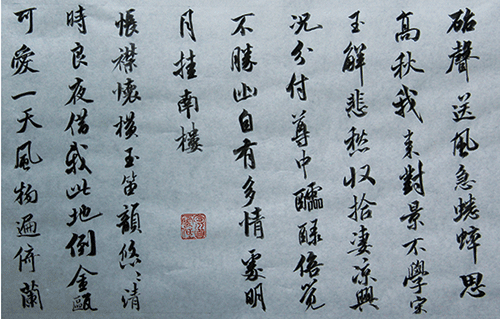 砧聲送風急蟋蟀思
高秋我来對景不學宋
玉解悲愁収拾凄凉興
況分付尊中醽醁倍覚
不勝幽自有多情處明
月挂南樓
悵襟懷横玉笛韻悠〻清
時良夜借我此地倒金甌
可愛一天風物遍倚蘭